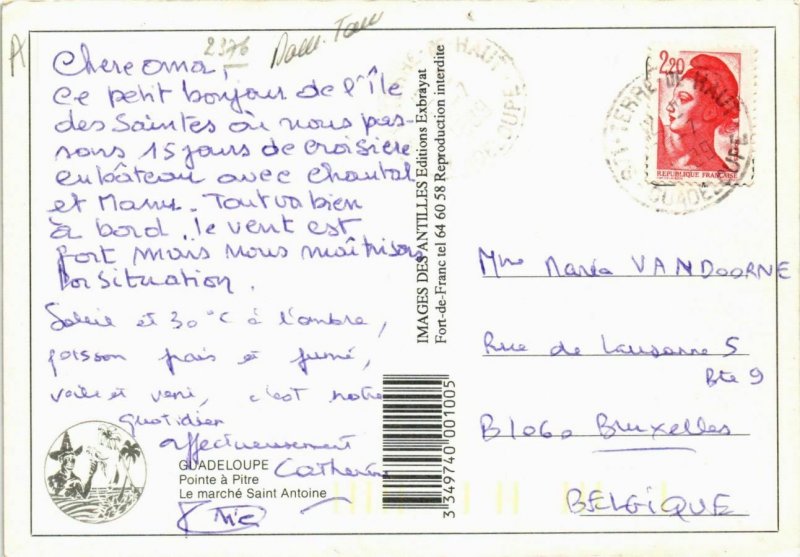 A
2376
Chere oma,
Ce petit bonjour de l'Île
des Saintes où nous pas-
sons 15 jours de croisière
en bâteau avec Chantal
et Manu. Tout va bien
à bord. le vent est
fort mais nous maîtrisons
la situation.
Soleil et 30°C à l'ombre,
poisson frais et fumé,
voile et vent, c'est notre
quotidien
affectueusement
Catherine
Eric
GUADELOUPE
Pointe à Pitre
Le marché Saint Antoine
IMAGES DES ANTILLES Editions Exbrayat
Fort-de-Franc tel 64 60 58 Reproduction interdite
3 349740 001005
2,20
REPUBLIQUE FRANÇAISE
TERRE-DE-HAUT
GUADELOUPE
TERRE-DE-HAUT
GUADELOUPE
Mme Maria VANDOORNE
Rue de Lausanne 5
Bte 9
B1060 Bruxelles
BELGIQUE